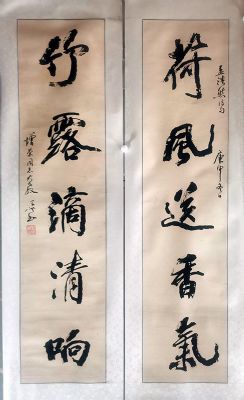 荷風送香氣
孟浩然句
庚申
竹露滴清响
增
同志